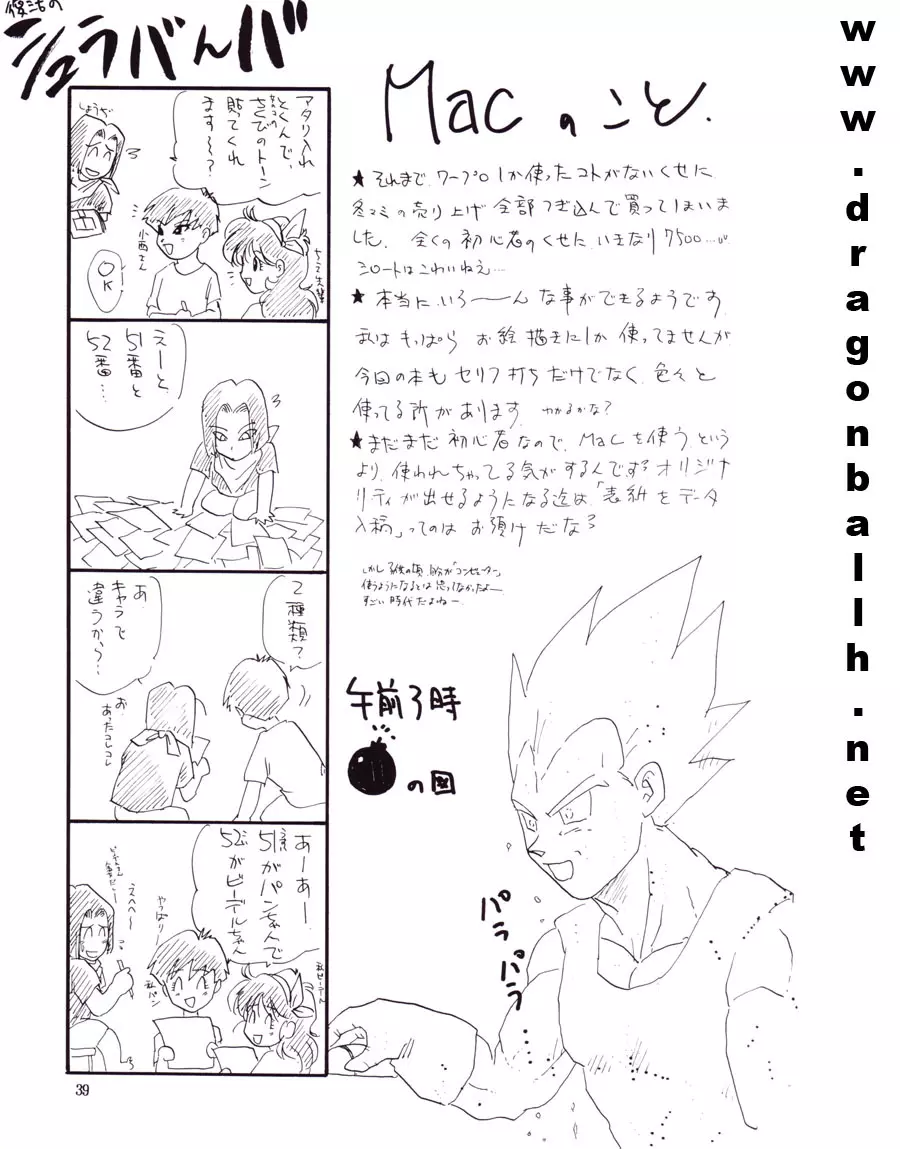 復活の
シュラバんバ
アタリ入れ
とくんで、
ますヨ〜?
貼てくれ
OK
小西さん
えーと、
51番と
52番…
2種類?
あ、
キャラで
違うから…
お、
あったコレコレ
あーあー
51番がパンちゃんで
52がビーデルちゃん
えへへ〜
やっぱり
私パン
39
Macのこと.
★それまで、ワープロしか使ったコトがないくせに
冬コミの売り上げ全部つぎ込んで買ってしまいま
した. 全くの初心者のくせに、いきなり7500…
シロートはこわいねえ…
★本当に、いろーーんな事ができるようです
私はもっぱらお絵描きにしか使ってませんが
今回の本もセリフ打ちだけでなく、色々と
使ってる所があります. わかるかな?
★まだまだ初心者なので、Macを使う、という
より、使われちゃってる気がするんです? オリジナ
リティが出せるようになる迄は、「表紙をデータ
入稿」ってのはお預けだな?
しかし子供の頃、自分がコンピューター
使うようになるとは思ってなかったよー
すごい時代だよねー
午前3時
の図
パラパラ
www.dragonballh.net